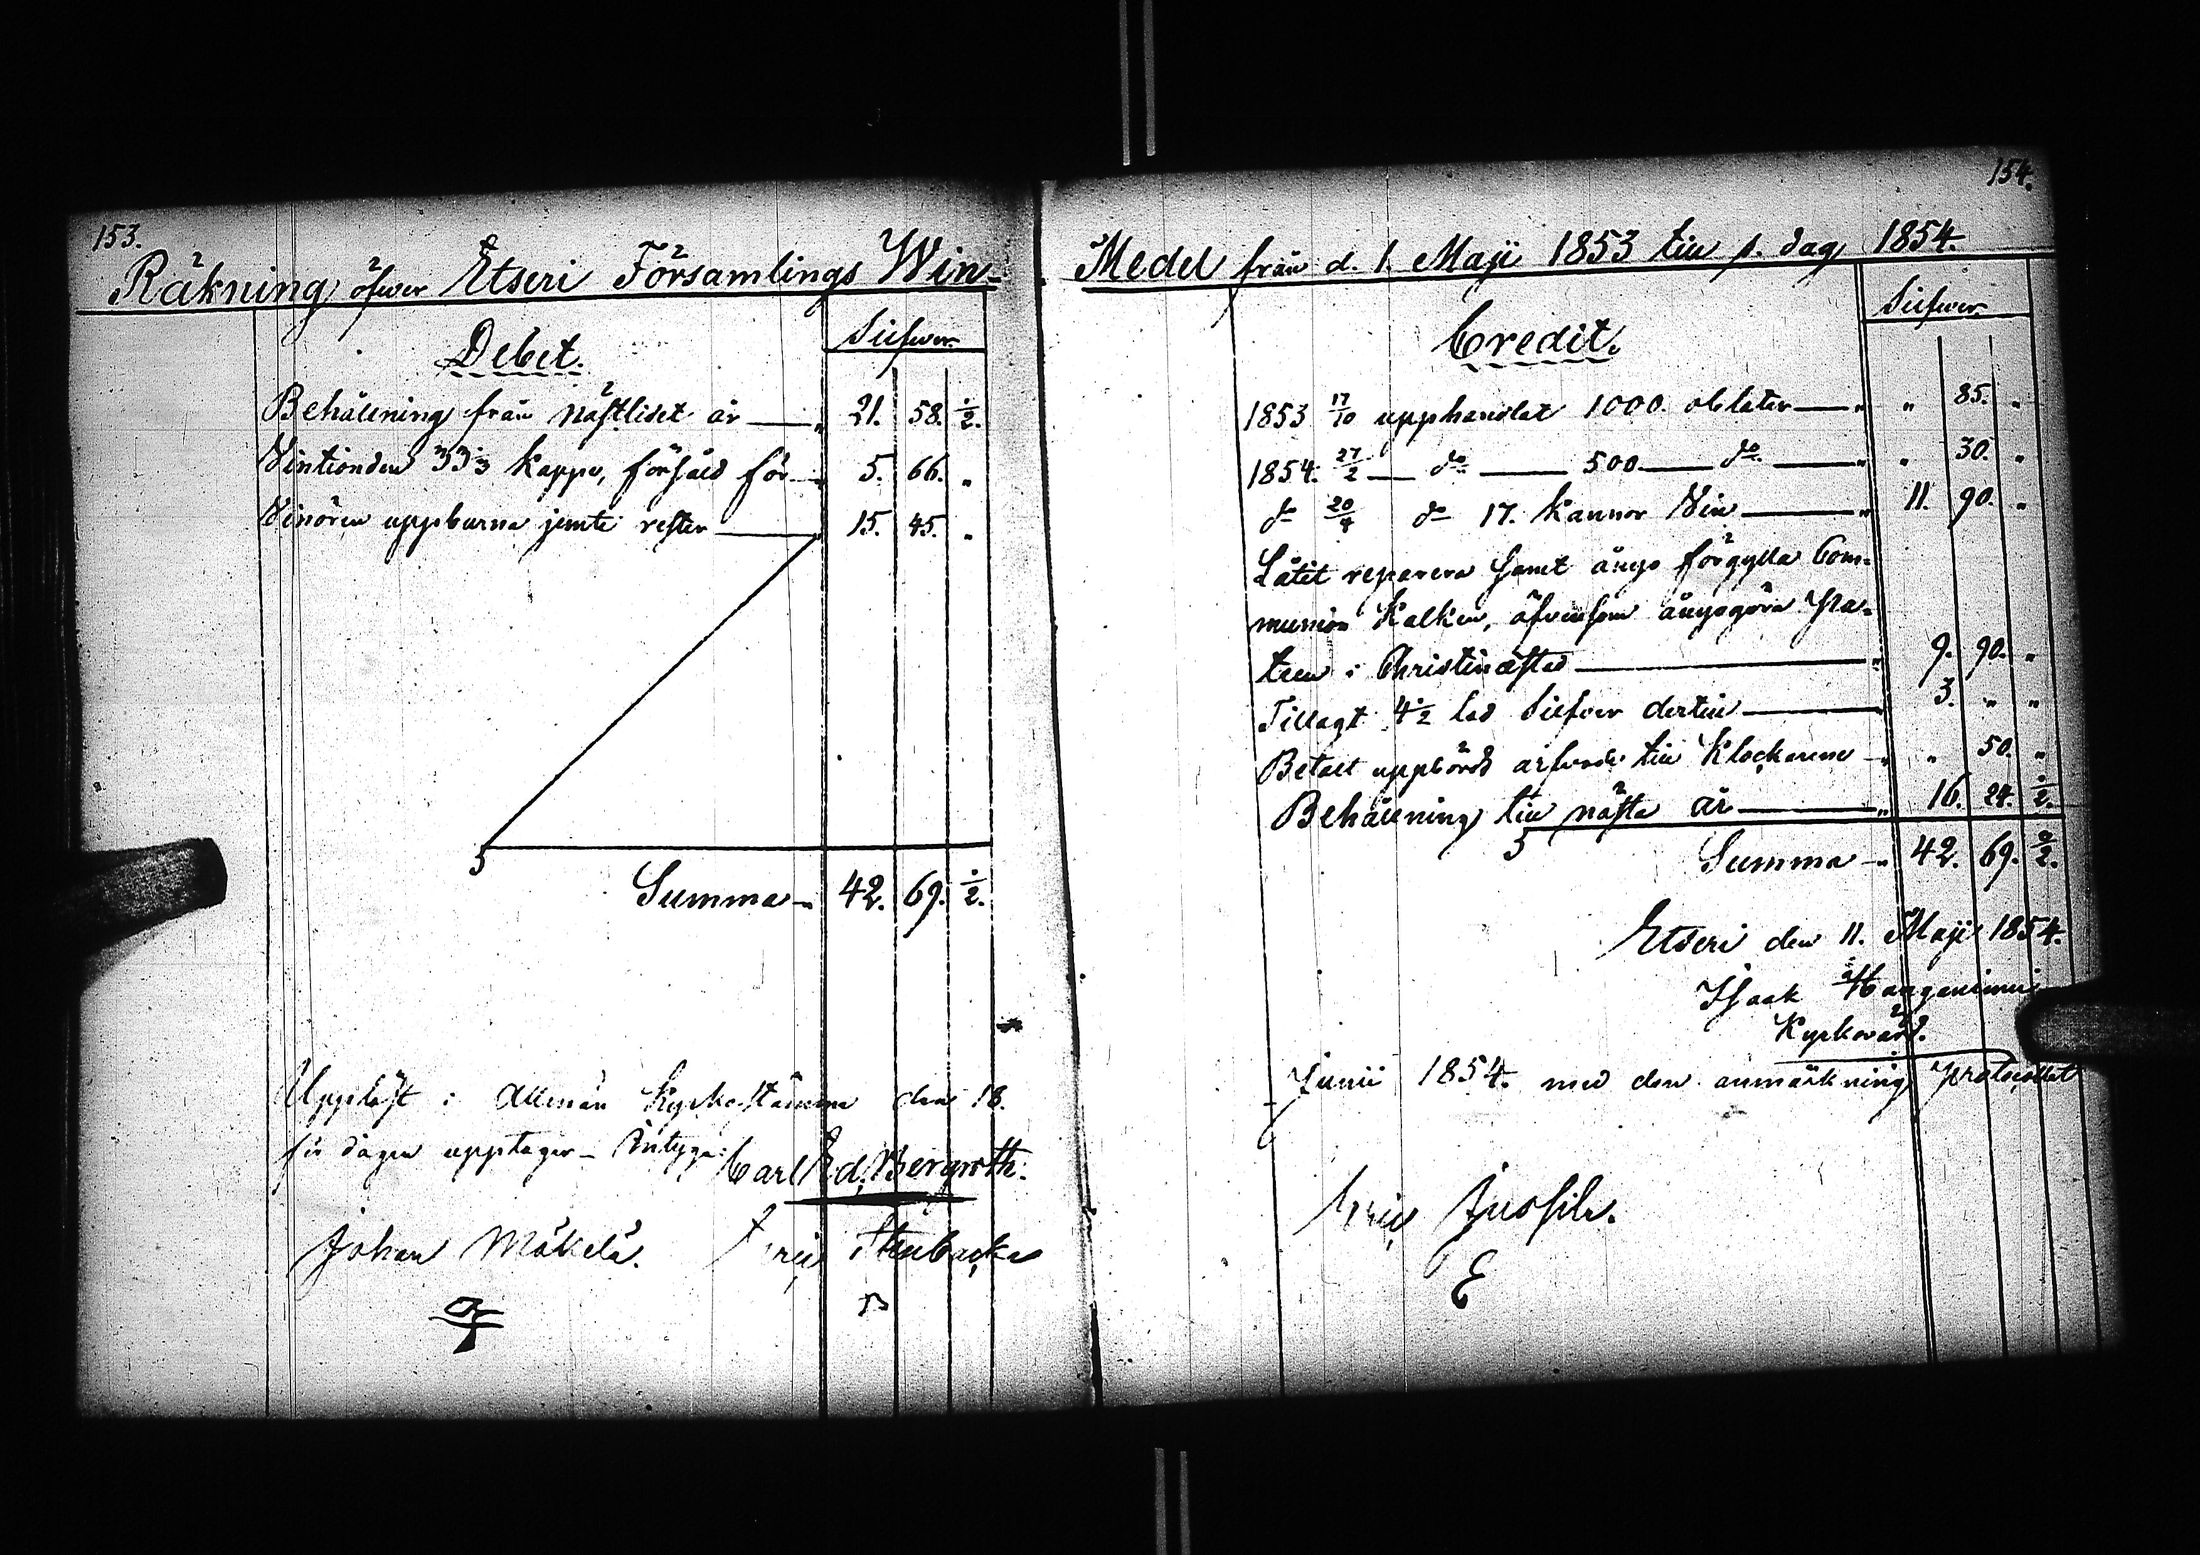 153.
Räkning öfwer Etseri Församlings Win-
Debet.
Silfwer.
Behållning från näſtlidet år — " 21. 58. ½.
Vintionden 33⅓ kappe, förſåld för — " 5. 66. "
Vinören uppburna jemte reſter — " 15. 45. "
Summa — " 42. 69. ½.
Uppläſt i Allmän Kyrkoſtämma den 18.
för dagen upptager — Intyga:
Carl Ed. Bergroth.
Johan Mäkelä. Eric Stenbacka
154.
Medel från d. 1. Maji 1853 till s. dag 1854.
Credit.
Silfwer.
1853 17/10 upphandlat 1000. oblater — " " 85. "
1854. 27/2 — do — 500 — do — " " 30. "
do 20/4 do 17. Kannor Vin — " 11. 90. "
Låtit reparera ſamt ånyo förgylla Com-
munion Kalken, äfvenſom ånyo göra Pa-
ten i Christinæſtad — " 9. 90. "
Tillagt 4½ lod Silfver dertill — " 3. " "
Betalt uppbörds arfvode till Klockaren — " " 50. "
Behållning till näſta år — " 16. 24. ½.
Summa — " 42. 69. ½.
Etseri den 11. Maji 1854.
Iſaak
Kyrkovärd.
Junii 1854. med den anmärkning Protocollet
Eric Juſſila.
E